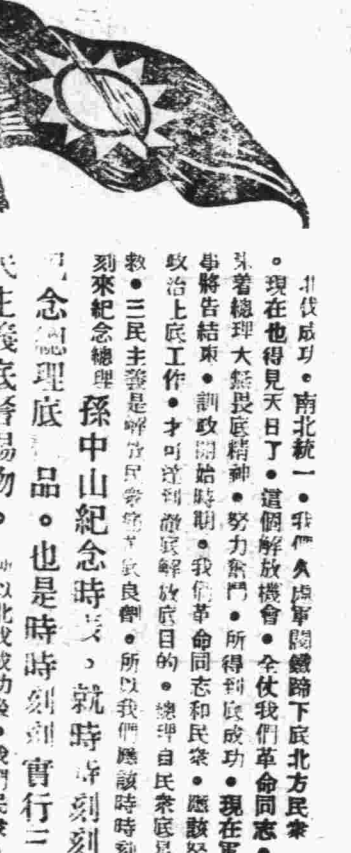 北伐成功。南北統一。我們久處軍閥鐵蹄下底北方民衆
。現在也得見天日了。這個解放機會。全仗我們革命同志。
着總理大無畏底精神。努力奮鬥。所得到底成功。現在軍
事將告結束。訓政開始時期。我們革命同志和民衆。應該努
政治上底工作。才可達到澈底解放底目的。總理自民衆底
救。三民主義是解放民衆痛苦底良劑。所以我們應該時時刻
刻來紀念總理
孫中山紀念時表，就時時刻刻
紀念總理底 品。也是時時刻刻實行三
民主義底 物。 所以北伐成功後。我們民衆